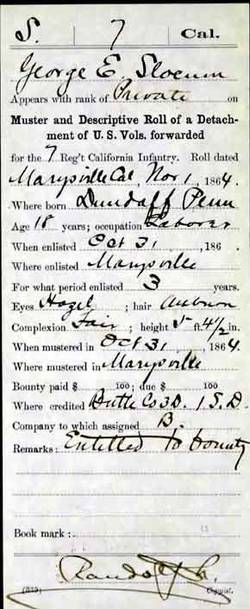 S. 7 Cal.
George E. Slocum
Appears with rank of Private on
Muster and Descriptive Roll of a Detach-
ment of U. S. Vols. forwarded
for the 7 Reg't California Infantry. Roll dated
Marysville Cal, Nov 1, 1864.
Where born Dundaff Penn
Age 18 years; occupation Laborer
When enlisted Oct 31, 186
Where enlisted Marysville
For what period enlisted 3 years.
Eyes Hazel; hair Auburn
Complexion Fair; height 5 ft. 4½ in.
When mustered in Oct 31, 1864
Where mustered in Marysville
Bounty paid $ 100; due $ 100
Where credited Butte Co 3D. 1 S.D.
Company to which assigned B.
Remarks: Entitled to bounty
Book mark:
Copyist.